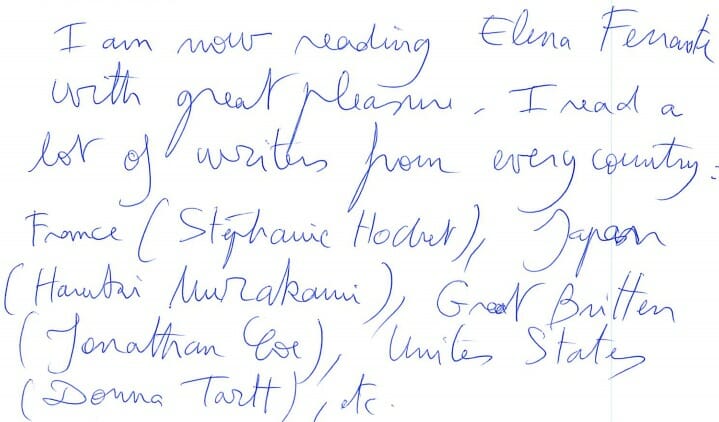 I am now reading Elena Ferrante
with great pleasure. I read a
lot of writers from every country:
France (Stéphanie Hochet), Japan
(Haruki Murakami), Great Britten
(Jonathan Coe), Unites States
(Donna Tartt), etc.